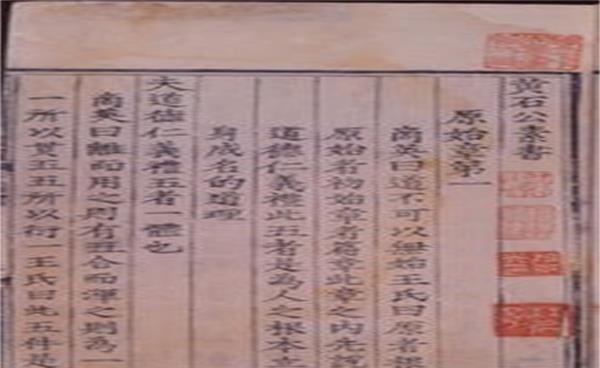 黃石公素書
原始章第一
商英曰道不可以無始王氏曰原者根
原始者初始章者篇章此章之內先說
道德仁義禮此五者是為人之根本立
身成名的道理
夫道德仁義禮五者一體也
商英曰離而用之則有五合而渾之則為一
一所以貫五五所以衍一王氏曰此五件是